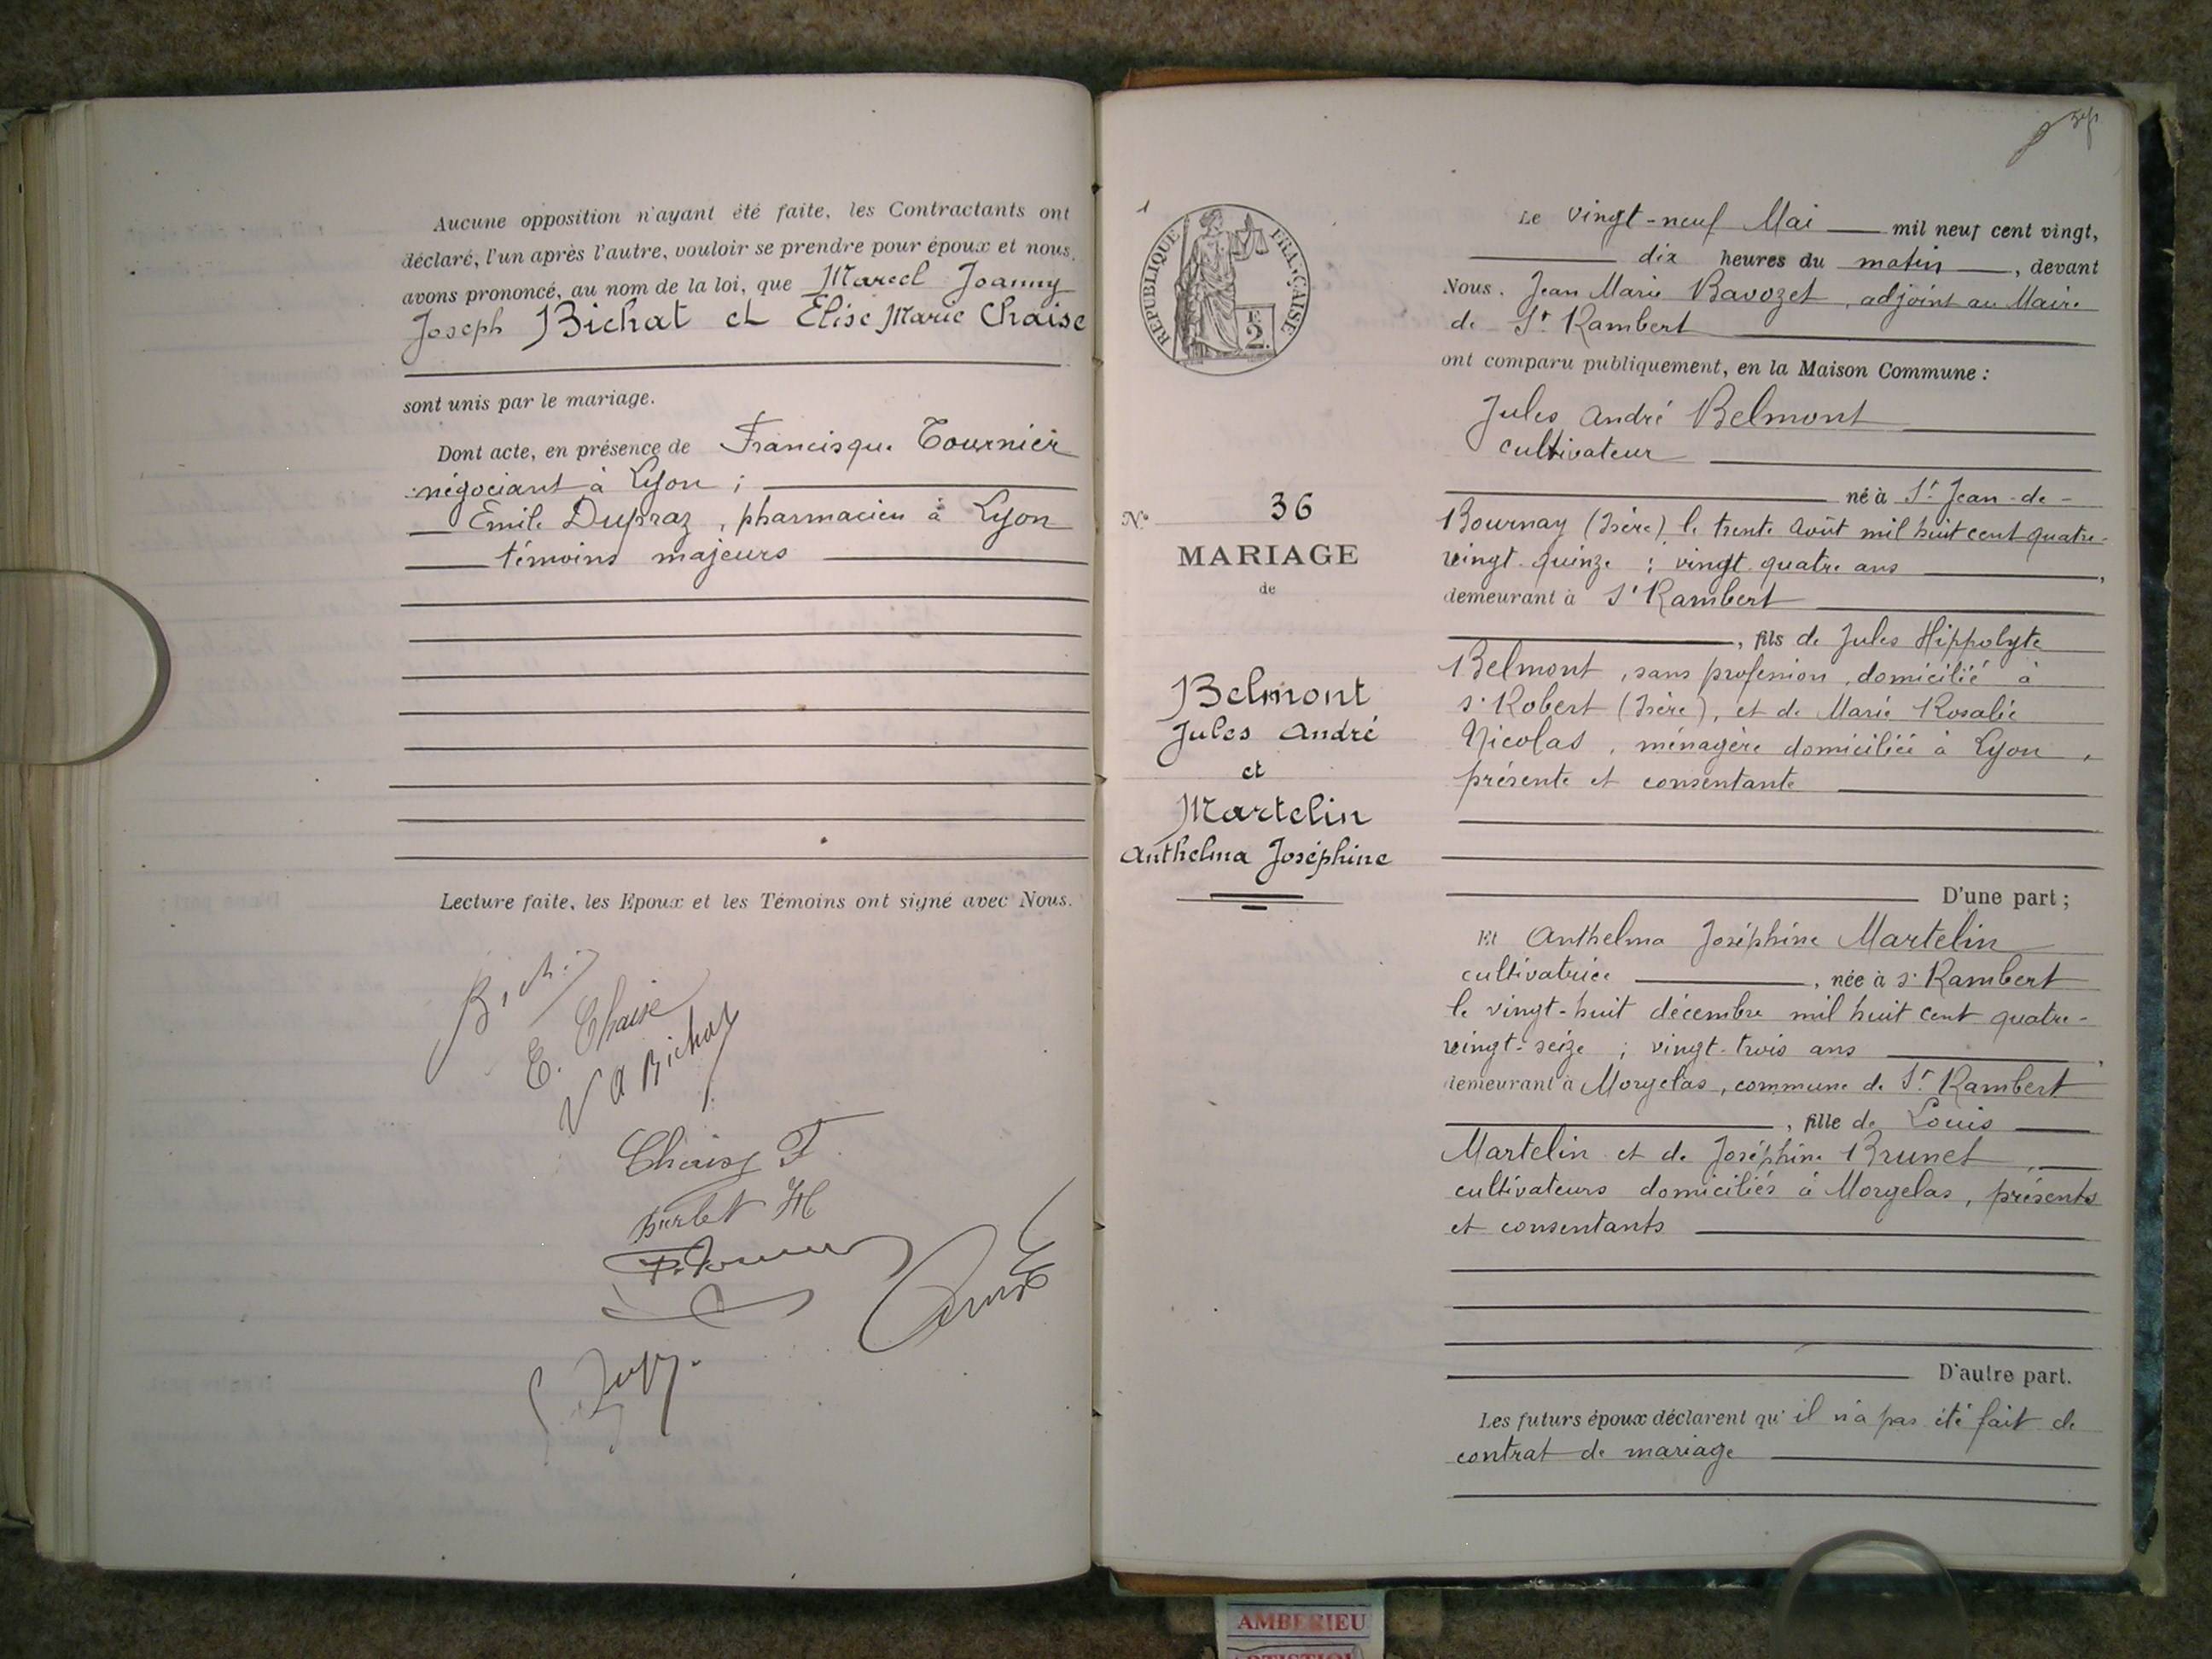 Aucune opposition n'ayant été faite, les Contractants ont
déclaré, l'un après l'autre, vouloir se prendre pour époux et nous,
avons prononcé, au nom de la loi, que Marcel Joanny
Joseph Bichat et Elise Marie Chaise
sont unis par le mariage.
Dont acte, en présence de Francisque Tournier
négociant à Lyon ;
Emile Dupraz, pharmacien à Lyon
témoins majeurs
Lecture faite, les Epoux et les Témoins ont signé avec Nous.
E. Chaise
Bichat
Chaise F
RÉPUBLIQUE FRANÇAISE
2
N° 36
MARIAGE
de
Belmont
Jules André
et
Martelin
Anthelma Joséphine
Le vingt-neuf Mai mil neuf cent vingt,
dix heures du matin, devant
Nous. Jean Marie Bavozet, adjoint au Maire
de St Rambert
ont comparu publiquement, en la Maison Commune :
Jules André Belmont
cultivateur
né à St Jean-de-
Bournay (Isère) le trente Août mil huit cent quatre-
vingt-quinze ; vingt-quatre ans,
demeurant à St Rambert
, fils de Jules Hippolyte
Belmont, sans profession, domicilié à
St Robert (Isère), et de Marie Rosalie
Nicolas, ménagère domiciliée à Lyon,
présente et consentante
D'une part ;
Et Anthelma Joséphine Martelin
cultivatrice, née à St Rambert
le vingt-huit décembre mil huit cent quatre-
vingt-seize ; vingt-trois ans,
demeurant à Morgelas, commune de St Rambert
, fille de Louis
Martelin et de Joséphine Brunet,
cultivateurs domiciliés à Morgelas, présents
et consentants
D'autre part.
Les futurs époux déclarent qu'il n'a pas été fait de
contrat de mariage
AMBERIEU